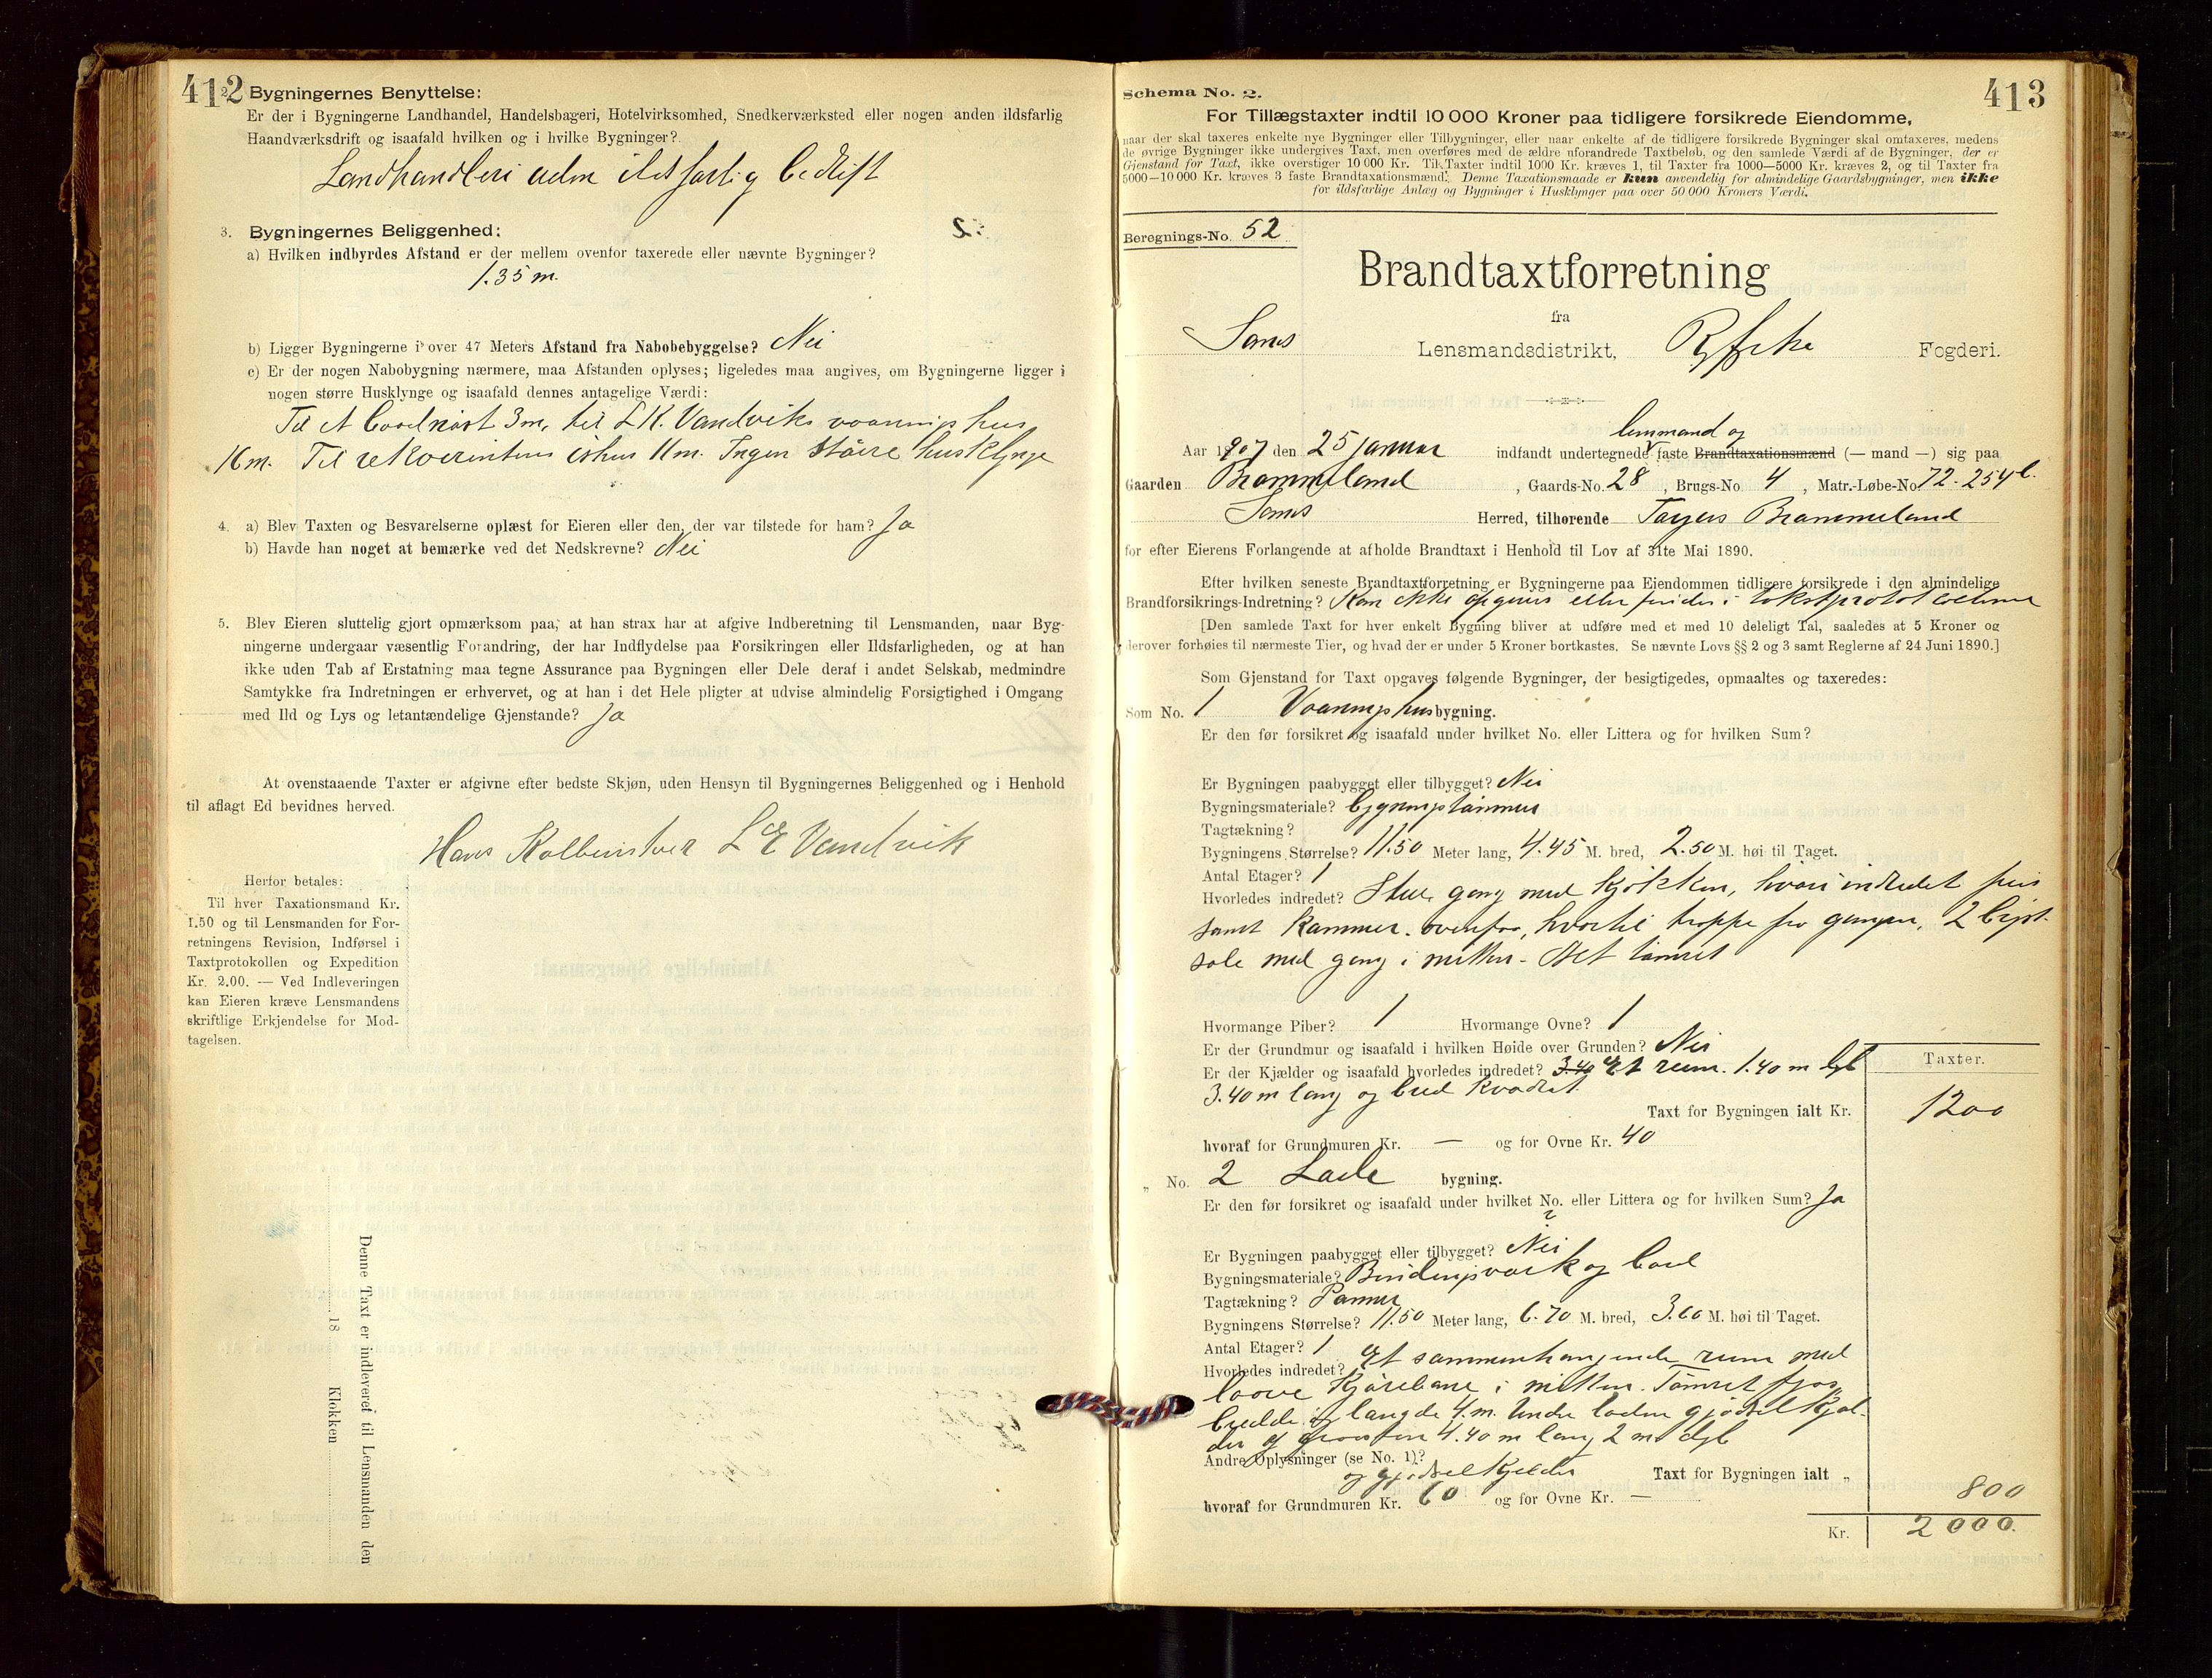 412
2. Bygningernes Benyttelse:
Er der i Bygningerne Landhandel, Handelsbageri, Hotelvirksomhed, Snedkerværksted eller nogen anden ildsfarlig
Haandværksdrift og isaafald hvilken og i hvilke Bygninger?
Landhandleri uden ildsfarlig bedrift
3. Bygningernes Beliggenhed:
a) Hvilken indbyrdes Afstand er der mellem ovenfor taxerede eller nævnte Bygninger?
1.35 m.
b) Ligger Bygningerne i over 47 Meters Afstand fra Nabobebyggelse? Nei
c) Er der nogen Nabobygning nærmere, maa Afstanden oplyses; ligeledes maa angives, om Bygningerne ligger i
nogen større Husklynge og isaafald dennes antagelige Værdi:
Til et baadnöst 3 m, til L K. Vandviks vaaningshus
16 m. Til rekvirentens ishus 11 m. Ingen större husklynge
4. a) Blev Taxten og Besvarelserne oplæst for Eieren eller den, der var tilstede for ham? Ja
b) Havde han noget at bemærke ved det Nedskrevne? Nei
5. Blev Eieren sluttelig gjort opmærksom paa, at han strax har at afgive Indberetning til Lensmanden, naar Byg-
ningerne undergaar væsentlig Forandring, der har Indflydelse paa Forsikringen eller Ildsfarligheden, og at han
ikke uden Tab af Erstatning maa tegne Assurance paa Bygningen eller Dele deraf i andet Selskab, medmindre
Samtykke fra Indretningen er erhvervet, og at han i det Hele pligter at udvise almindelig Forsigtighed i Omgang
med Ild og Lys og letantændelige Gjenstande? Ja
At ovenstaaende Taxter er afgivne efter bedste Skjøn, uden Hensyn til Bygningernes Beliggenhed og i Henhold
til aflagt Ed bevidnes herved.
Hans Kolbenstvet L E Vandvik
Herfor betales:
Til hver Taxationsmand Kr.
1.50 og til Lensmanden for For-
retningens Revision, Indførsel i
Taxtprotokollen og Expedition
Kr. 2.00. — Ved Indleveringen
kan Eieren kræve Lensmandens
skriftlige Erkjendelse for Mod-
tagelsen.
Denne Taxt er indleveret til Lensmanden den
18 Klokken
413
Schema No. 2.
For Tillægstaxter indtil 10 000 Kroner paa tidligere forsikrede Eiendomme,
naar der skal taxeres enkelte nye Bygninger eller Tilbygninger, eller naar enkelte af de tidligere forsikrede Bygninger skal omtaxeres, medens
de øvrige Bygninger ikke undergives Taxt, men overføres med de ældre uforandrede Taxtbeløb, og den samlede Værdi af de Bygninger, der er
Gjenstand for Taxt, ikke overstiger 10 000 Kr. Til Taxter indtil 1000 Kr. kræves 1, til Taxter fra 1000—5000 Kr. kræves 2, og til Taxter fra
5000—10 000 Kr. kræves 3 faste Brandtaxationsmænd. Denne Taxationsmaade er kun anvendelig for almindelige Gaardsbygninger, men ikke
for ildsfarlige Anlæg og Bygninger i Husklynger paa over 50 000 Kroners Værdi.
Beregnings-No. 52
Brandtaxtforretning
fra
Sands Lensmandsdistrikt, Ryfylke Fogderi.
lensmand og
Aar 1907 den 25 januar indfandt undertegnede faste Brandtaxationsmænd (— mand —) sig paa
Gaarden Brommeland, Gaards-No. 28, Brugs-No 4, Matr.-Løbe-No 72. 254 b.
Sands Herred, tilhørende Torjus Brommeland
for efter Eierens Forlangende at afholde Brandtaxt i Henhold til Lov af 31te Mai 1890.
Efter hvilken seneste Brandtaxtforretning er Bygningerne paa Eiendommen tidligere forsikrede i den almindelige
Brandforsikrings-Indretning? Kan ikke opgives eller findes i
[Den samlede Taxt for hver enkelt Bygning bliver at udføre med et med 10 deleligt Tal, saaledes at 5 Kroner og
derover forhøies til nærmeste Tier, og hvad der er under 5 Kroner bortkastes. Se nævnte Lovs §§ 2 og 3 samt Reglerne af 24 Juni 1890.]
Som Gjenstand for Taxt opgaves følgende Bygninger, der besigtigedes, opmaaltes og taxeredes:
Som No. 1 Vaaningshusbygning.
Er den før forsikret og isaafald under hvilket No. eller Littera og for hvilken Sum?
Er Bygningen paabygget eller tilbygget? Nei
Bygningsmateriale? bygningstömmer
Tagtækning?
Bygningens Størrelse? 11.50 Meter lang, 4.45 M. bred, 2.50 M. høi til Taget.
Antal Etager? 1
Hvorledes indredet? Stue, gang med kjökken, hvori indredet spis
samt kammer. ovenpaa, hvortil trappe fra gangen, 2
sale med gang i midten. Alt tömret
Hvormange Piber? 1 Hvormange Ovne? 1
Er der Grundmur og isaafald i hvilken Høide over Grunden? Nei
Er der Kjælder og isaafald hvorledes indredet? 3.40 Et rum. 1.40 m dyb
3.40 m lang og bred kvadrat
Taxter.
Taxt for Bygningen ialt Kr. 1200
hvoraf for Grundmuren Kr. — og for Ovne Kr. 40
„ No. 2 Lade bygning.
Er den før forsikret og isaafald under hvilket No. eller Littera og for hvilken Sum? Ja
?
Er Bygningen paabygget eller tilbygget? Nei
Bygningsmateriale? Bindingsværk og bord
Tagtækning? Panner
Bygningens Størrelse? 11.50 Meter lang, 6.70 M. bred, 3.60 M. høi til Taget.
Antal Etager? 1
Hvorledes indredet? Et sammenhængende rum med
loove kjörebane i midten. Tömret fjos,
bredde og længde 4. m. Under laden gjödselkjæl-
der af graasten 4.40 m lang 2 m dyb
Andre Oplysninger (se No. 1)?
og gjödselkjelder Taxt for Bygningen ialt „ 800
hvoraf for Grundmuren Kr. 60 og for Ovne Kr. —
Kr. 2000.